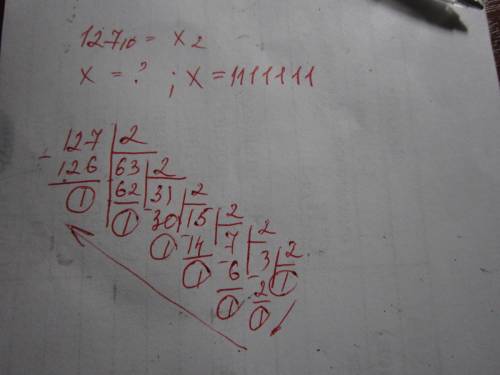 127₁₀ = x₂
x = ? ; x = 1111111
- 127 2
126 63 2
1 62 31 2
1 30 15 2
1 14 7 2
1 6 3 2
1 2 1
1